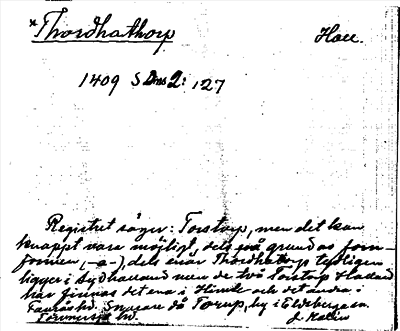 *Thordhathorp Hall.
1409 SDns 2: 127
Registret säger: Torstorp, men det kan
knappt vara möjligt, dels på grund av forn-
formen (-a-), dels enär Thordhatorp tydligen
ligger i Sydhalland men de två Torstorp i Halland
här finnas det ena i Himle och det andra i
Faurås hd. Snarare då Torup, by i Eldsberga sn.
Tönnersjö hd. J. Kalén